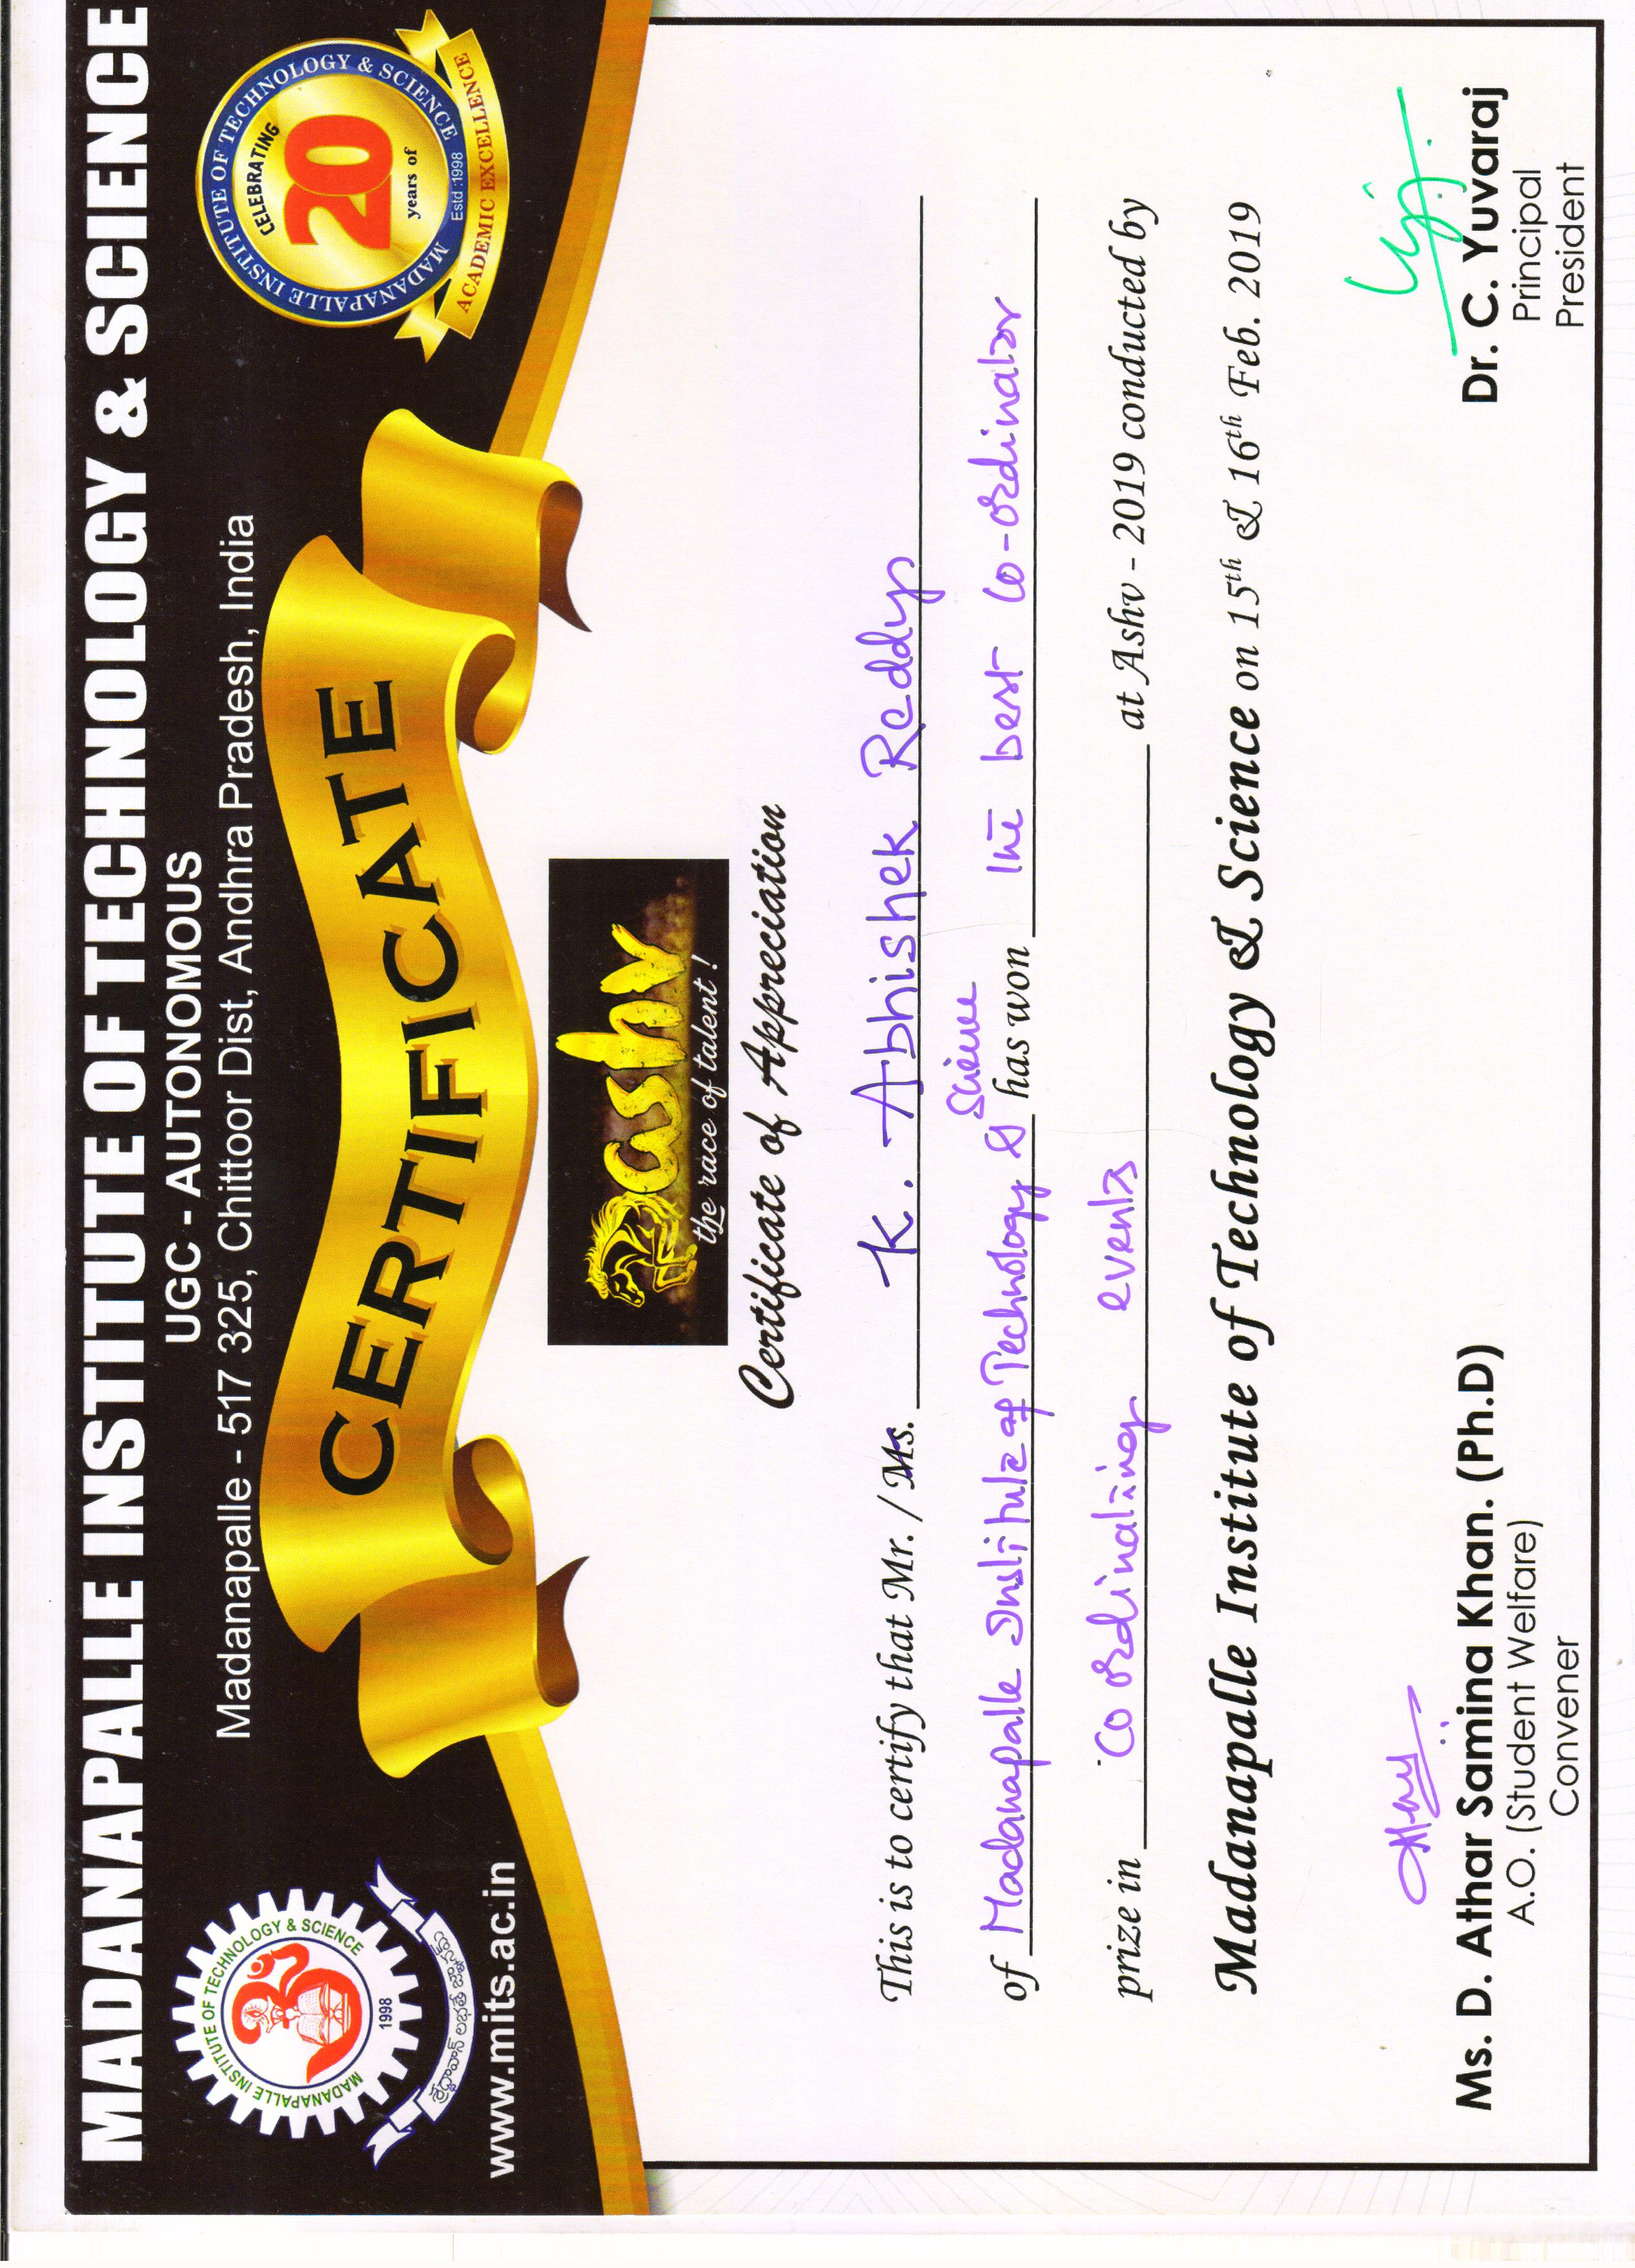 MADANAPALLE INSTITUTE OF TECHNOLOGY & SCIENCE
UGC - AUTONOMOUS
Madanapalle - 517 325, Chittoor Dist, Andhra Pradesh, India
MADANAPALLE INSTITUTE OF TECHNOLOGY & SCIENCE
1998
శ్రద్ధావాన్ లభతే జ్ఞానమ్
www.mits.ac.in
MADANAPALLE INSTITUTE OF TECHNOLOGY & SCIENCE
CELEBRATING
20
years of
Estd :1998
ACADEMIC EXCELLENCE
CERTIFICATE
ashv
the race of talent !
Certificate of Appreciation
This is to certify that Mr. / Ms. K. Abhishek Reddy
of Madanapalle Institute of Technology & Science has won the best co-ordinator
prize in Coordinating events at Ashv - 2019 conducted by
Madanapalle Institute of Technology & Science on 15th & 16th Feb. 2019
Ms. D. Athar Samina Khan. (Ph.D)
A.O. (Student Welfare)
Convener
Dr. C. Yuvaraj
Principal
President